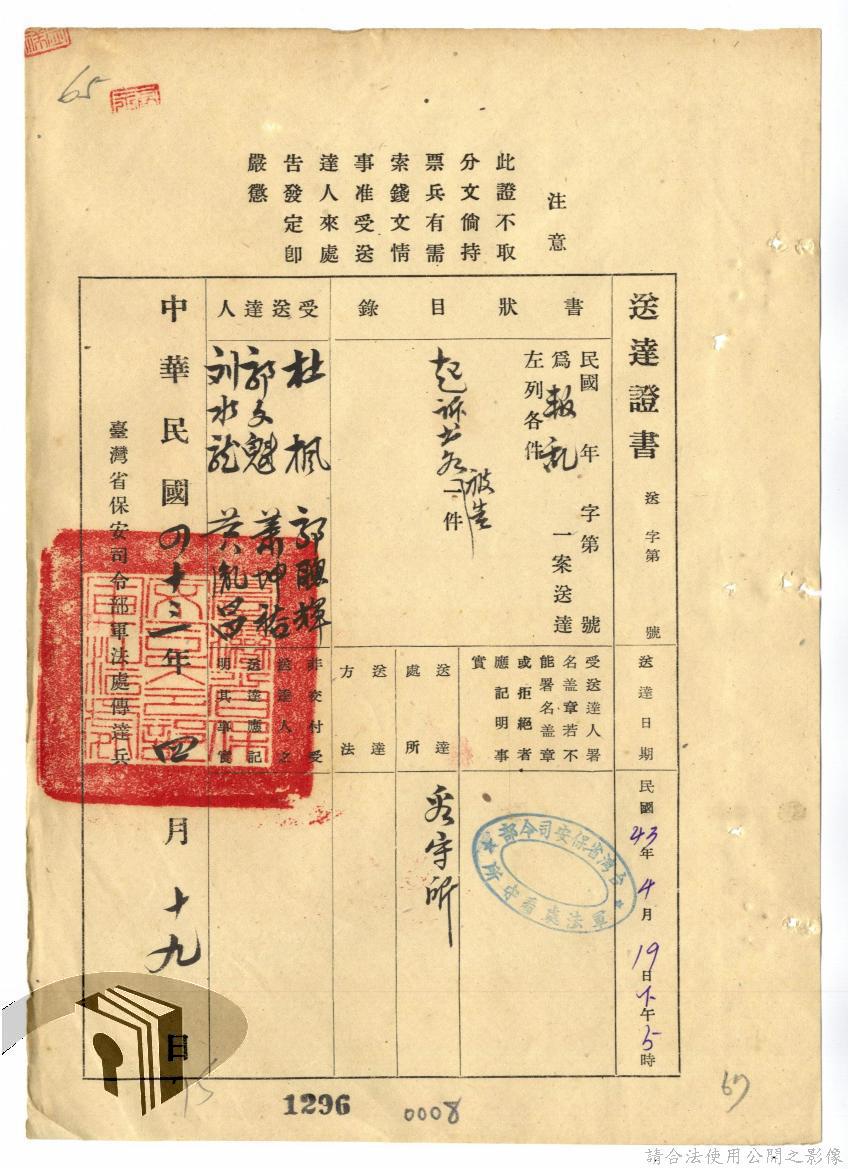 65
注意
此證不取
分文倘持
票兵有需
索錢文情
事准受送
達人來處
告發定卽
嚴懲
送達證書
送 字第 號
送達日期
民國43年4月19日下午5時
書狀目錄
民國 年 字第 號
爲叛乱一案送達
左列各件
起訴书各一件
被告
受送達人署
名蓋章若不
能署名蓋章
或拒絕者
應記明事
實
台灣省保安司令部
軍法處看守所
送達處所
看守所
送達方法
受送達人
杜楓 郭聰輝
郭文魁 蕭坤裕
刘水龍 黃胤昌
非交付受
送達人之
送達應記
明其事實
中華民國四十三年四月十九日
臺灣省保安司令部軍法處傳達兵
15
1296
0008
67
請合法使用公開之影像